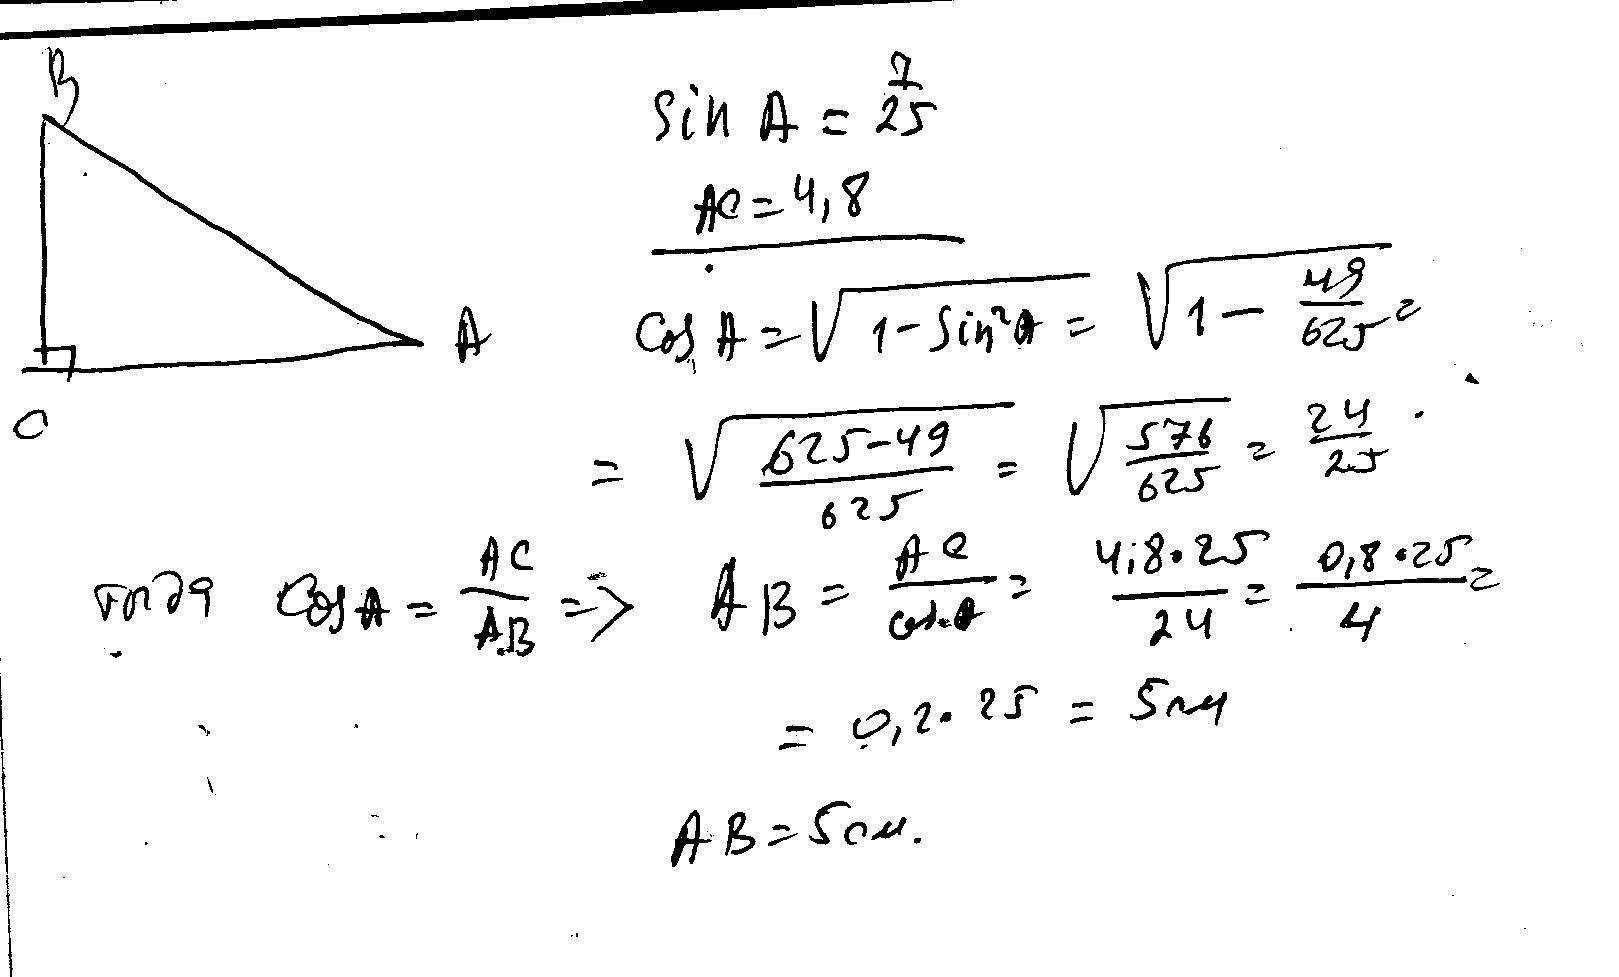 B
sin A = 7/25
AC = 4,8
A
cos A = √(1 - sin²A) = √(1 - 49/625) =
C
= √((625-49)/625) = √(576/625) = 24/25.
тогда cos A = AC/AB => AB = AC/cos A = 4,8·25/24 = 0,8·25/4 =
= 0,2·25 = 5см
AB = 5см.